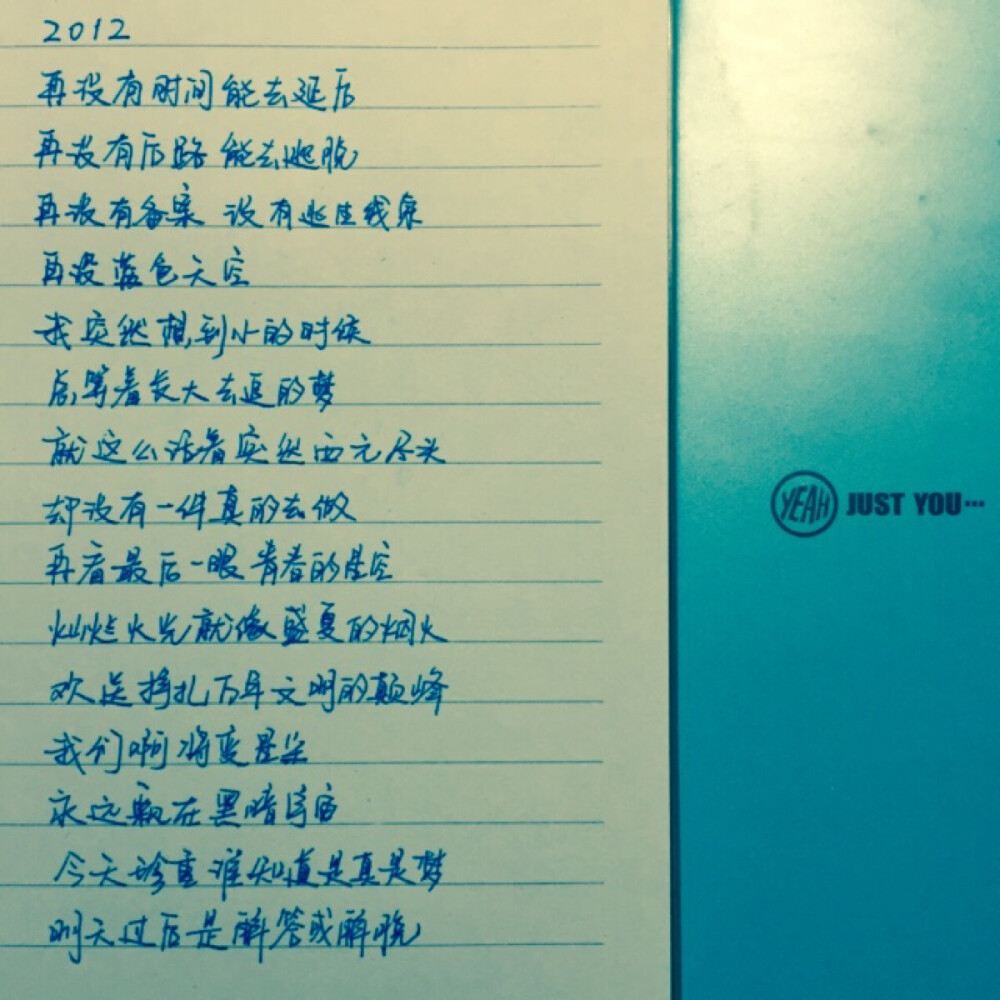 2012
再没有时间能去延后
再没有后路能去逃脱
再没有备案 没有逃生线索
再没蓝色天空
我突然想到小的时候
总等着长大去追的梦
就这么活着突然西元尽头
却没有一件真的去做
再看最后一眼青春的星空
灿烂火光就像盛夏的烟火
欢送挣扎万年文明的巅峰
我们啊将变星尘
永远飘在黑暗宇宙
今天珍重谁知道是真是梦
明天过后是解答或解脱
YEAH JUST YOU…